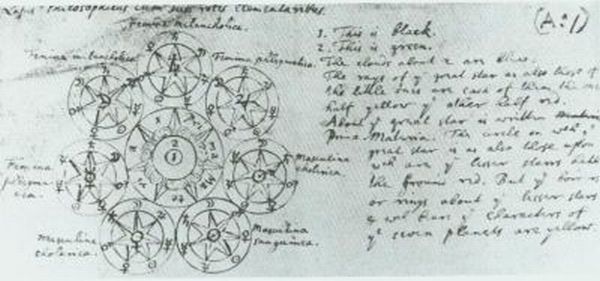 Lapis Philosophicus cum suis rotis elementaribus.
Femina melancholica.
Femina melancholica
Femina phlegmatica
Femina phlegmatica.
Masculina cholerica.
Masculina cholerica.
Masculina sanguinea.
(A:1)
1. This is black.
2. This is green.
The clouds about 2 are blue.
The rays of yᵉ great star as also those of
the little ones are each of them the one
half yellow yᵉ other half red.
About yᵉ great star is written
Prima Materia. The circle on wᶜʰ yᵉ
great star is as also those upon
wᶜʰ are yᵉ lesser stars
the ground red. But yᵉ
or rings about yᵉ lesser stars
wᶜʰ bear yᵉ characters of
yᵉ seven planets are yellow.